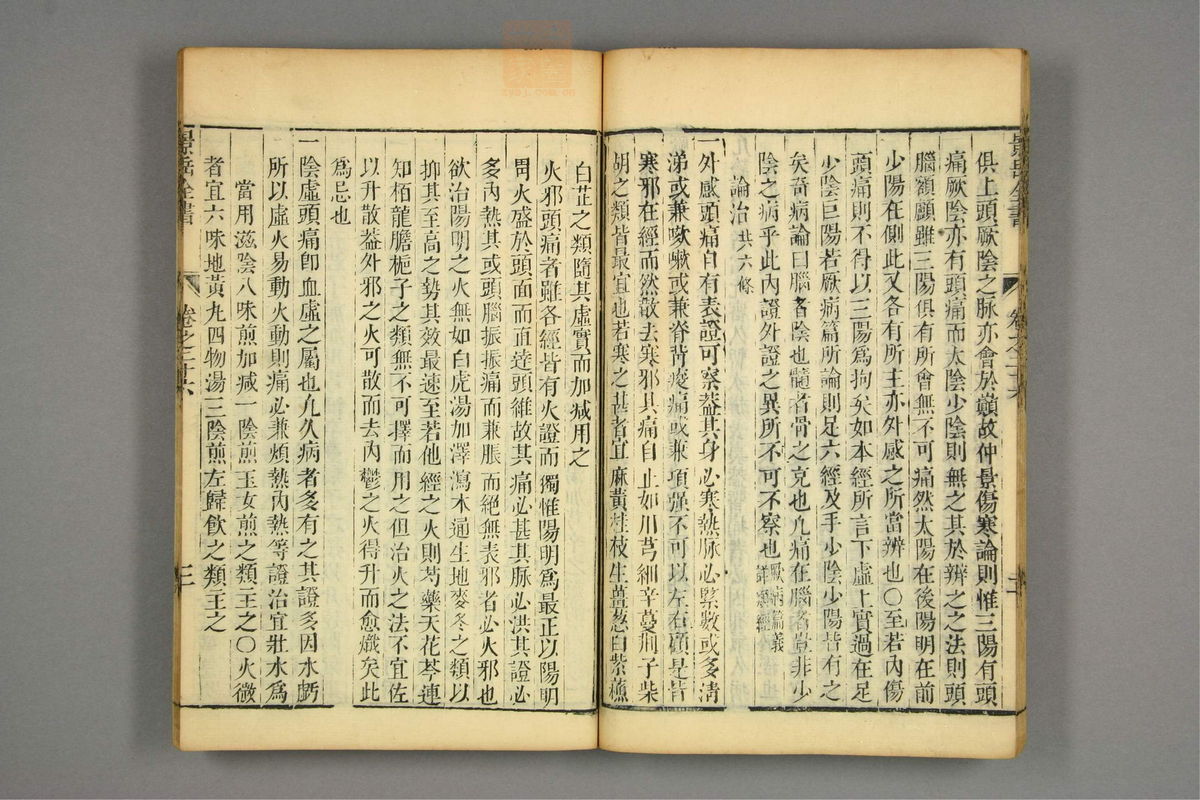 俱上頭厥陰之脉亦會於巔故仲景傷寒論則惟三陽有頭
痛厥陰亦有頭痛而太陰少陰則無之其於辨之之法則頭
腦額顱雖三陽俱有所會無不可痛然太陽在後陽明在前
少陽在側此又各有所主亦外感之所當辨也○至若內傷
頭痛則不得以三陽爲拘矣如本經所言下虛上實過在足
少陰巨陽若厥病篇所論則足六經及手少陰少陽皆有之
矣奇病論曰腦者陰也髓者骨之充也凡痛在腦者豈非少
陰之病乎此內證外證之異所不可不察也厥病篇義詳類經
論治共六條
一外感頭痛自有表證可察葢其身必寒熱脉必緊數或多清
涕或兼咳嗽或兼脊背痠痛或兼項强不可以左右顧是皆
寒邪在經而然散去寒邪其痛自止如川芎細辛蔓荆子柴
胡之類皆最宜也若寒之甚者宜麻黃桂枝生薑葱白紫蘇
白芷之類隨其虛實而加減用之
一火邪頭痛者雖各經皆有火證而獨惟陽明爲最正以陽明
胃火盛於頭面而直達頭維故其痛必甚其脉必洪其證必
多內熱其或頭腦振振痛而兼脹而絕無表邪者必火邪也
欲治陽明之火無如白虎湯加澤瀉木通生地麥冬之類以
抑其至高之勢其效最速至若他經之火則芍藥天花芩連
知栢龍膽梔子之類無不可擇而用之但治火之法不宜佐
以升散葢外邪之火可散而去內鬱之火得升而愈熾矣此
爲忌也
一陰虛頭痛卽血虛之屬也凡久病者多有之其證多因水虧
所以虛火易動火動則痛必兼煩熱內熱等證治宜壯水爲
當用滋陰八味煎加減一陰煎玉女煎之類主之○火微
者宜六味地黃丸四物湯三陰煎左歸飲之類主之
景岳全書
卷之二十六
三